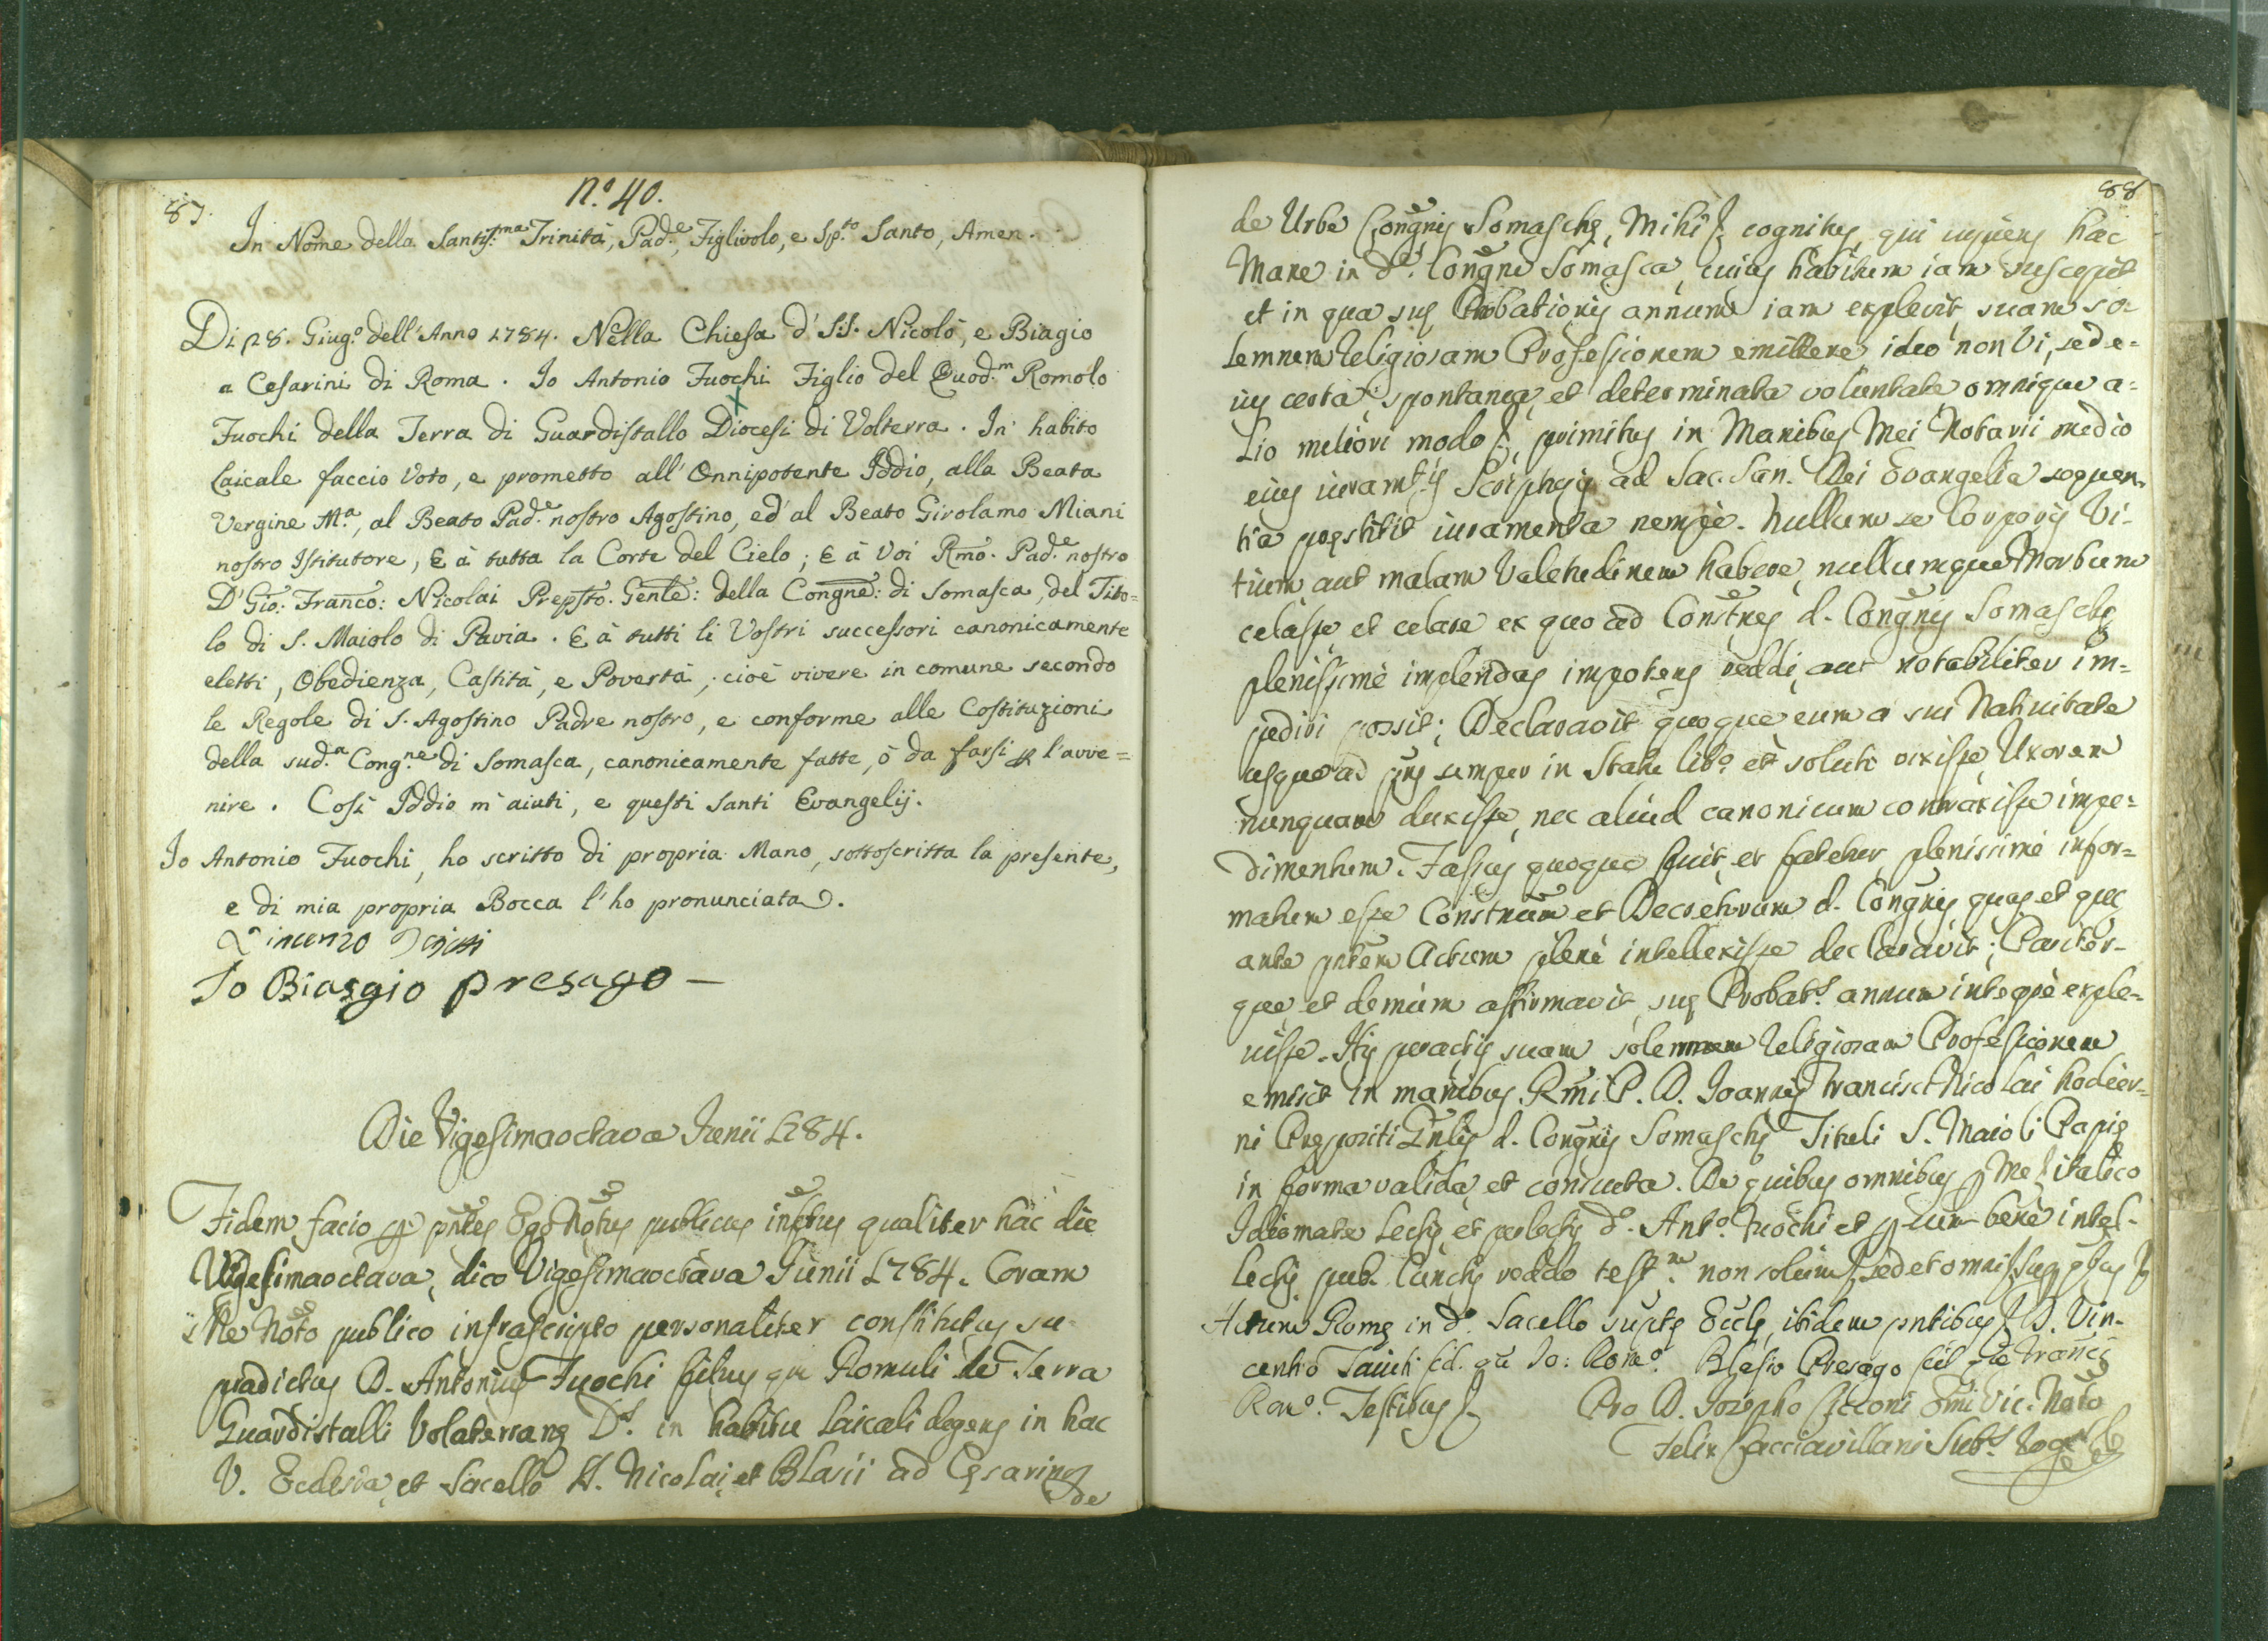 87.
N.º 40.
In Nome della Santis.ma Trinità, Pad.e, Figlivolo, e Sp.to Santo, Amen.
Di 28. Giug.o dell'Anno 1784. Nella Chiesa d' S.S. Nicolò, e Biagio
a Cesarini di Roma. Io Antonio Fuochi Figlio del Quod.m Romolo
Fuochi della Terra di Guardistallo Diocesi di Volterra. In habito
Laicale faccio Voto, e prometto all' Onnipotente Iddio, alla Beata
Vergine M.a, al Beato Pad.e nostro Agostino, ed' al Beato Girolamo Miani
nostro Istitutore, E à tutta la Corte del Cielo; E à Voi Rmo. Pad.e nostro
D' Gio: Franco: Nicolai Prepsto. Genle: della Congne: di Somasca, del Tito=
lo di S. Maiolo di Pavia. E à tutti li Vostri successori canonicamente
eletti, Obedienza, Castità, e Povertà, cioè vivere in comune secondo
le Regole di S. Agostino Padre nostro, e conforme alle Costituzioni
della sud.a Cong.ne di Somasca, canonicamente fatte, ò da farsi p l'avve=
nire. Così Iddio m'aiuti, e questi Santi Evangelij.
Io Antonio Fuochi, ho scritto di propria Mano, sottoscritta la presente,
e di mia propria Bocca l'ho pronunciata.
Io Biasgio presago —
Die Vigesimaoctava Junii 1784.
Fidem facio p pntes Ego Notus publicus infrus qualiter hac die
Vigesimaoctava, dico Vigesimaoctava Junii 1784. Coram
Me Noto publico infrascripto personaliter constitutus su-
pradictus D. Antonius Fuochi filius qm Romuli de Terra
Guardistalli Volaterranę D.s in habitu Laicali degens in hac
V. Ecclesia, et Sacello SS. Nicolai et Blasii ad Cęsarinos
de
88
de Urbe Congnis Somaschę, Mihi cognitus, qui cupiens hac
Mane in d.a Congne Somasca, cuius habitum iam suscepit
et in qua suę Probationis annum iam explevit, suam so-
lemnem Religiosam Professionem emittere ideo non Vi, sed e-
ius certa, spontanea, et determinata voluntate omnique a-
lio meliori modo, primitus in Manibus Mei Notarii medio
eius iuram.to Scripturis ad Sac. San. Dei Evangelia sequen-
tia pręstitit iuramenta nempè. Nullum se Corporis Vi-
tium aut malam Valetudinem habere, nullumque Morbum
celasse et celare ex quo ad Constnes d. Congnis Somaschę
plenissimè implendas impotens reddi, aut notabiliter im-
pediri possit; Declaravit quoque eum a sui Nativitate
usque ad pns semper in Statu lib.o et soluto vixisse Uxorem
nunquam duxisse, nec aliud canonicum contraxisse impe=
dimentum. Fassus quoque fuit, et fatetur plenissimè infor=
matum esse Constnum et Decretorum d. Congnis quas et quę
ante pntem Actum plenè intellexisse declaravit; Pariter-
que, et demum affirmavit suę Probat.s annum integrè exple-
visse. His peractis suam solemnem Religiosam Professionem
emisit in manibus Rmi P. D. Joannis Francisci Nicolai hodier-
ni Prępositi Gnlis d. Congnis Somaschę Tituli S. Maioli Papię
in forma valida, et consueta. De quibus omnibus p Me italico
Idiomate Lectis, et perlectis d.o Ant.o Fuochi et p eum benè intel-
lectis pub. Cunctis reddo test.m non solum, sed et omni
Actum Romę in d.o Sacello supte Eccle, ibidem pntibus D. Vin-
centio fil. qm Jo: Rom.o Blasio Presago fil qm Franci
Rom.o Testibus
Pro D. Josepho Cicconi Emi Vic. Noto
Felix Facciavillani Sub.s Rog.s